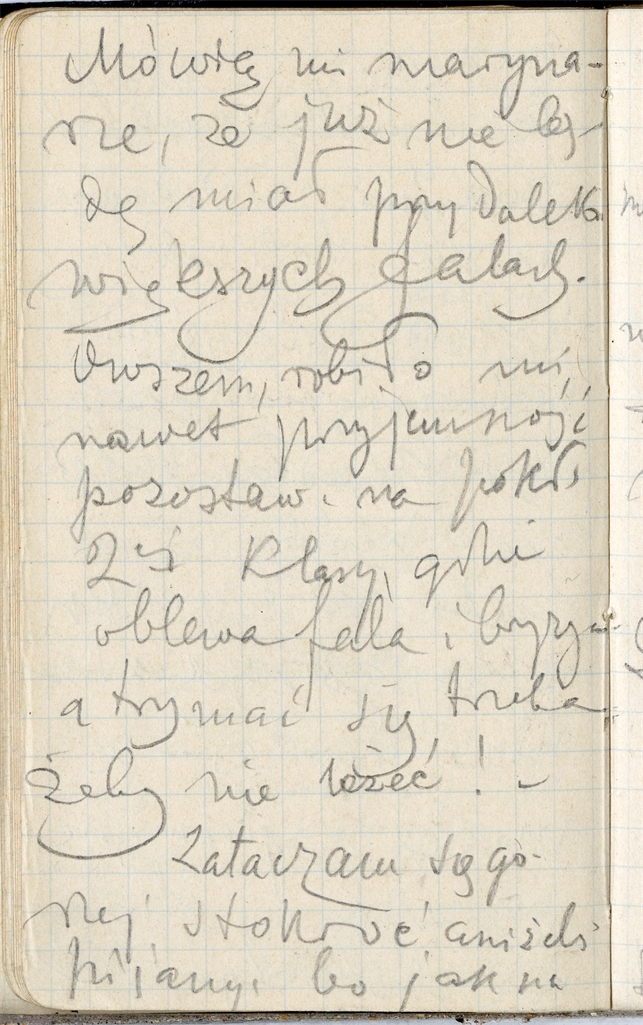 Mówią mi maryna-
rze, że już nie bę-
dę miał przy Dalek.
większych falach.
Owszem, robiło mi,
nawet przyjemność
pozostaw. na pokł.
2ej klasy, gdzie
oblewa fala i bryzg
a trzymać się, trzeba
żeby nie leżeć! -
Zataczam się go-
rzej stokroć aniżeli
pijany, bo jak na